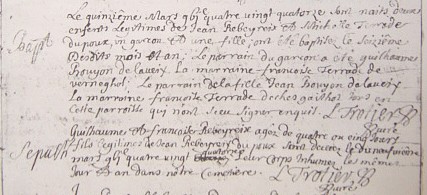 Le quinzième Mars gbj quatre vingt quatorze sont naits deux
enfents Legitimes de Jean Rebeyreix et Michelle Terrade
dupoux, un garçon et une fille; ont été baptisé le seizième
Bapt
desdits mois et an; Le parrain du garçon a été guilhaume
Bouyon de laveix. La marraine francoise Terrade de
verneghol; Le parrain de la fille Jean Bouyon de laveix
La marraine francoise Terrade de
cette parroisse qui n'ont sceu signer enquis. L Trotier
Curé
Guilhaume et francoise Rebeyreix agez de quatre ou cinq jours
Sepult
fils legitimes de Jean Rebeyreix du poux sont decedez le dixneufvieme
mars gbj quatre vingt quatorze leur corps inhumez les mesmes
Jour et an dans notre cemetiere. L Trotier
Curé